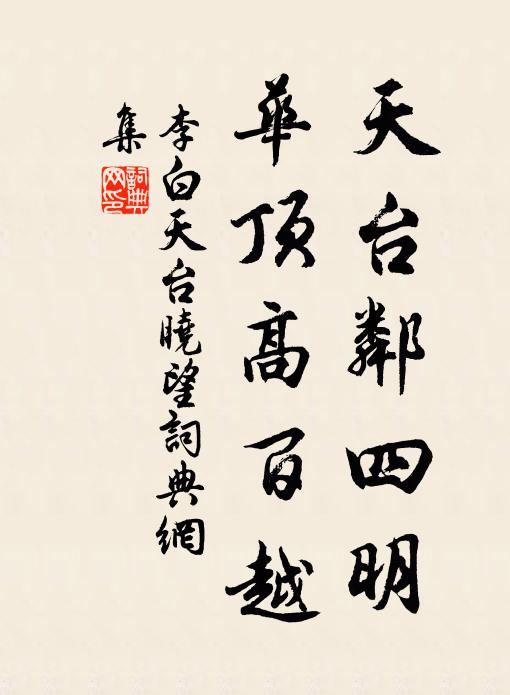 天台鄰四明
華頂高百越
李白天台曉望詞典網
集
詞典
网印